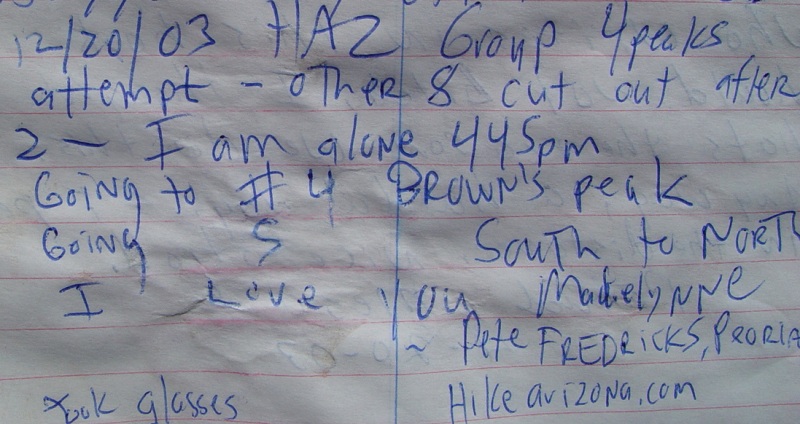 12/20/03 HAZ Group 4peaks
attempt - other 8 cut out after
2 - I am alone 445pm
Going to #4 BROWN'S peak
Going S South to NORTH
I Love you Madelynne
~ Pete FREDRICKS, PEORIA
Took glasses Hikearizona.com